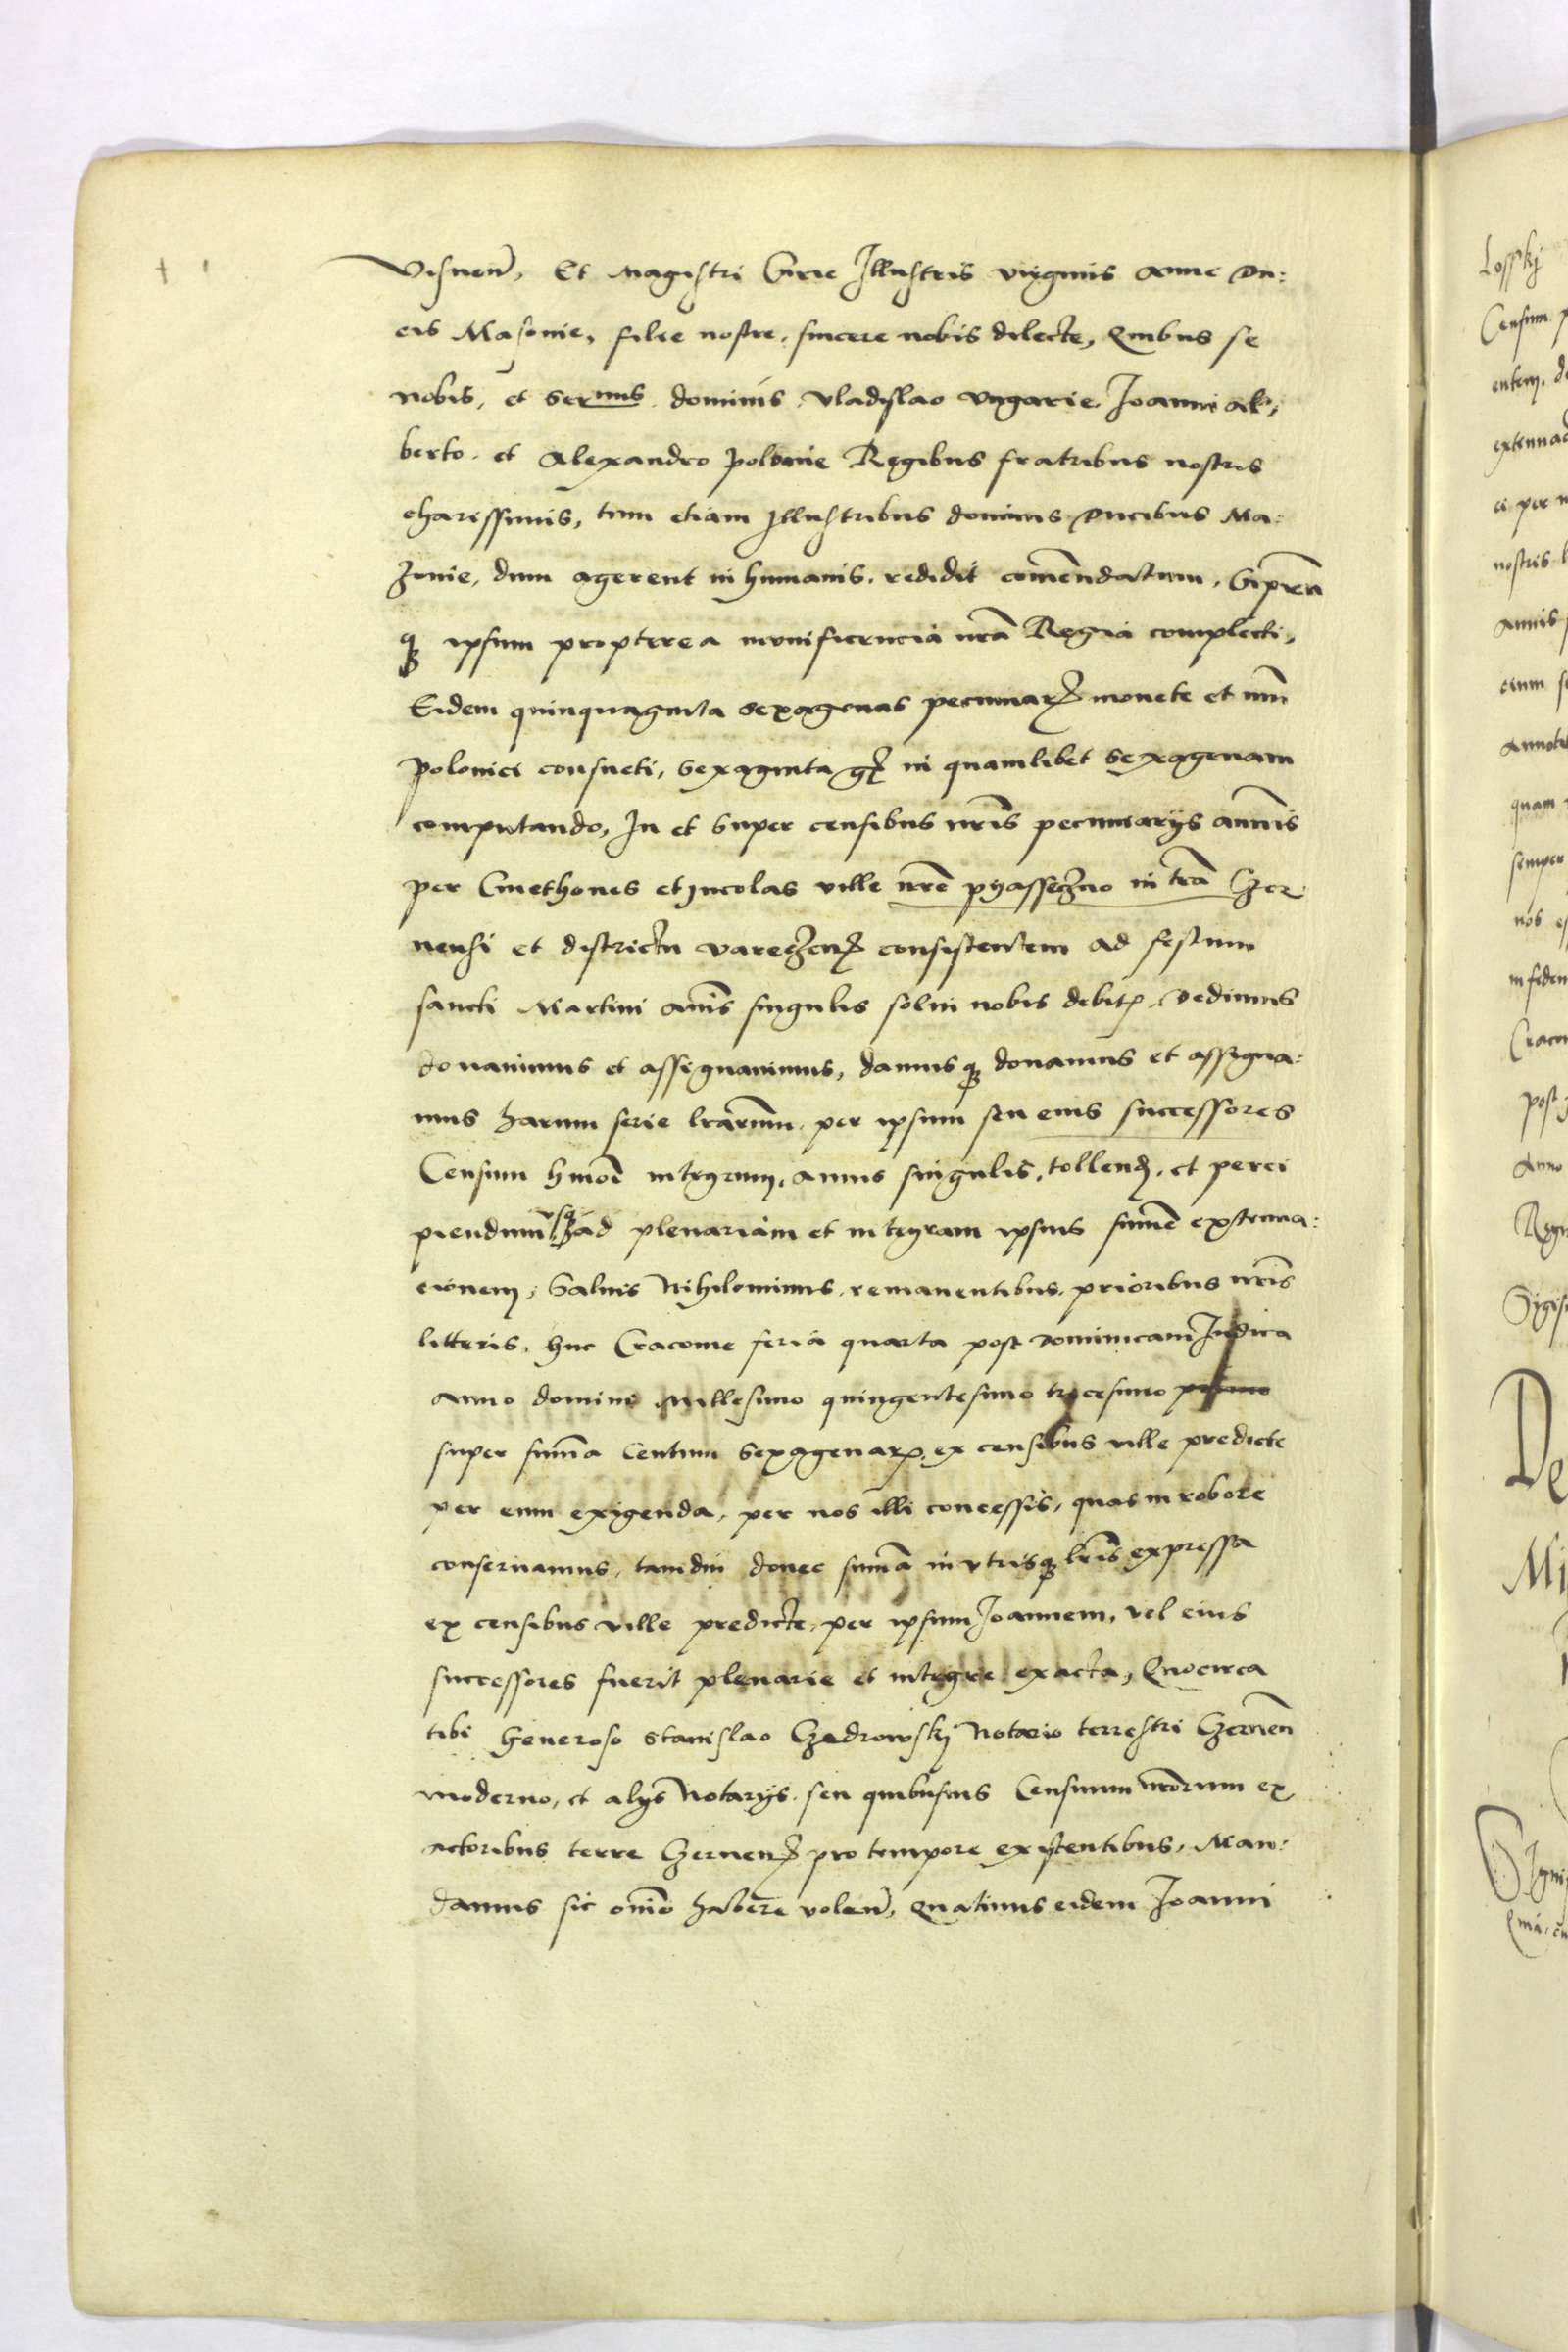 Visnen̄, Et Magistri Curie Illustris virginis Anne Du:
cis Masovie, filie nostre, sincere nobis dilecte, Quibus se
nobis, et Sermis dominis Vladislao Vngarie, Joanni Al,
berto, et Alexandro Polonie Regibus fratribus nostris
charissimis, tum etiam Illustribus dominis Ducibus Ma:
zovie, dum agerent in humanis, reddidit com̄endatum,
qz ipsum propterea munificencia nrā Regia complecti,
Eidem quinquaginta sexagenas pecuniarz monete et nūi
Polonici consueti, sexaginta gr in quamlibet sexagenam
computando, In et super censibus nrīs pecuniarijs annuis
per Cmethones et Incolas ville nrē Pyasseczno in trā Czer
nensi et districtu Vareczenz consistentem ad festum
sancti Martini annis singulis solui nobis debitz, Dedimus
donauimus et assignauimus, damus qz donamus et assigna:
mus harum serie lrārum, per ipsum seu eius successores
Censum hmōi integrum, annis singulis, tollendz, et perci
piendum vsqz ad plenariam et integram ipsius sum̄e extenua:
cionem, Saluis Nihilominus, remanentibus, prioribus nrīs
litteris, hic Cracouie feria quarta post Dominicam Judica
Anno domini Millesimo quingentesimo tricesimo primo
super sum̄a Centum sexagenarz, ex censibus ville predicte
per eum exigenda, per nos illi concessis, quas in robore
conseruamus, tamdiu donec sum̄a in vtrisqz lrīs expressa
ex censibus ville predicte, per ipsum Joannem, vel eius
successores fuerit plenarie et integre exacta, Quocirca
tibi Generoso Stanislao Czadrowskj Notario terrestri Czernen̄
moderno, et alijs Notarijs, seu quibusuis Censuum nrōrum ex
actoribus terre Czernenz pro tempore existentibus, Man:
damus sic om̄ino habere volen̄, Quatinus eidem Joanni
Losskj
Censum
extenua
ei per
nostris
Annis
quam
semper
nos
Cracou
post
Anno
De